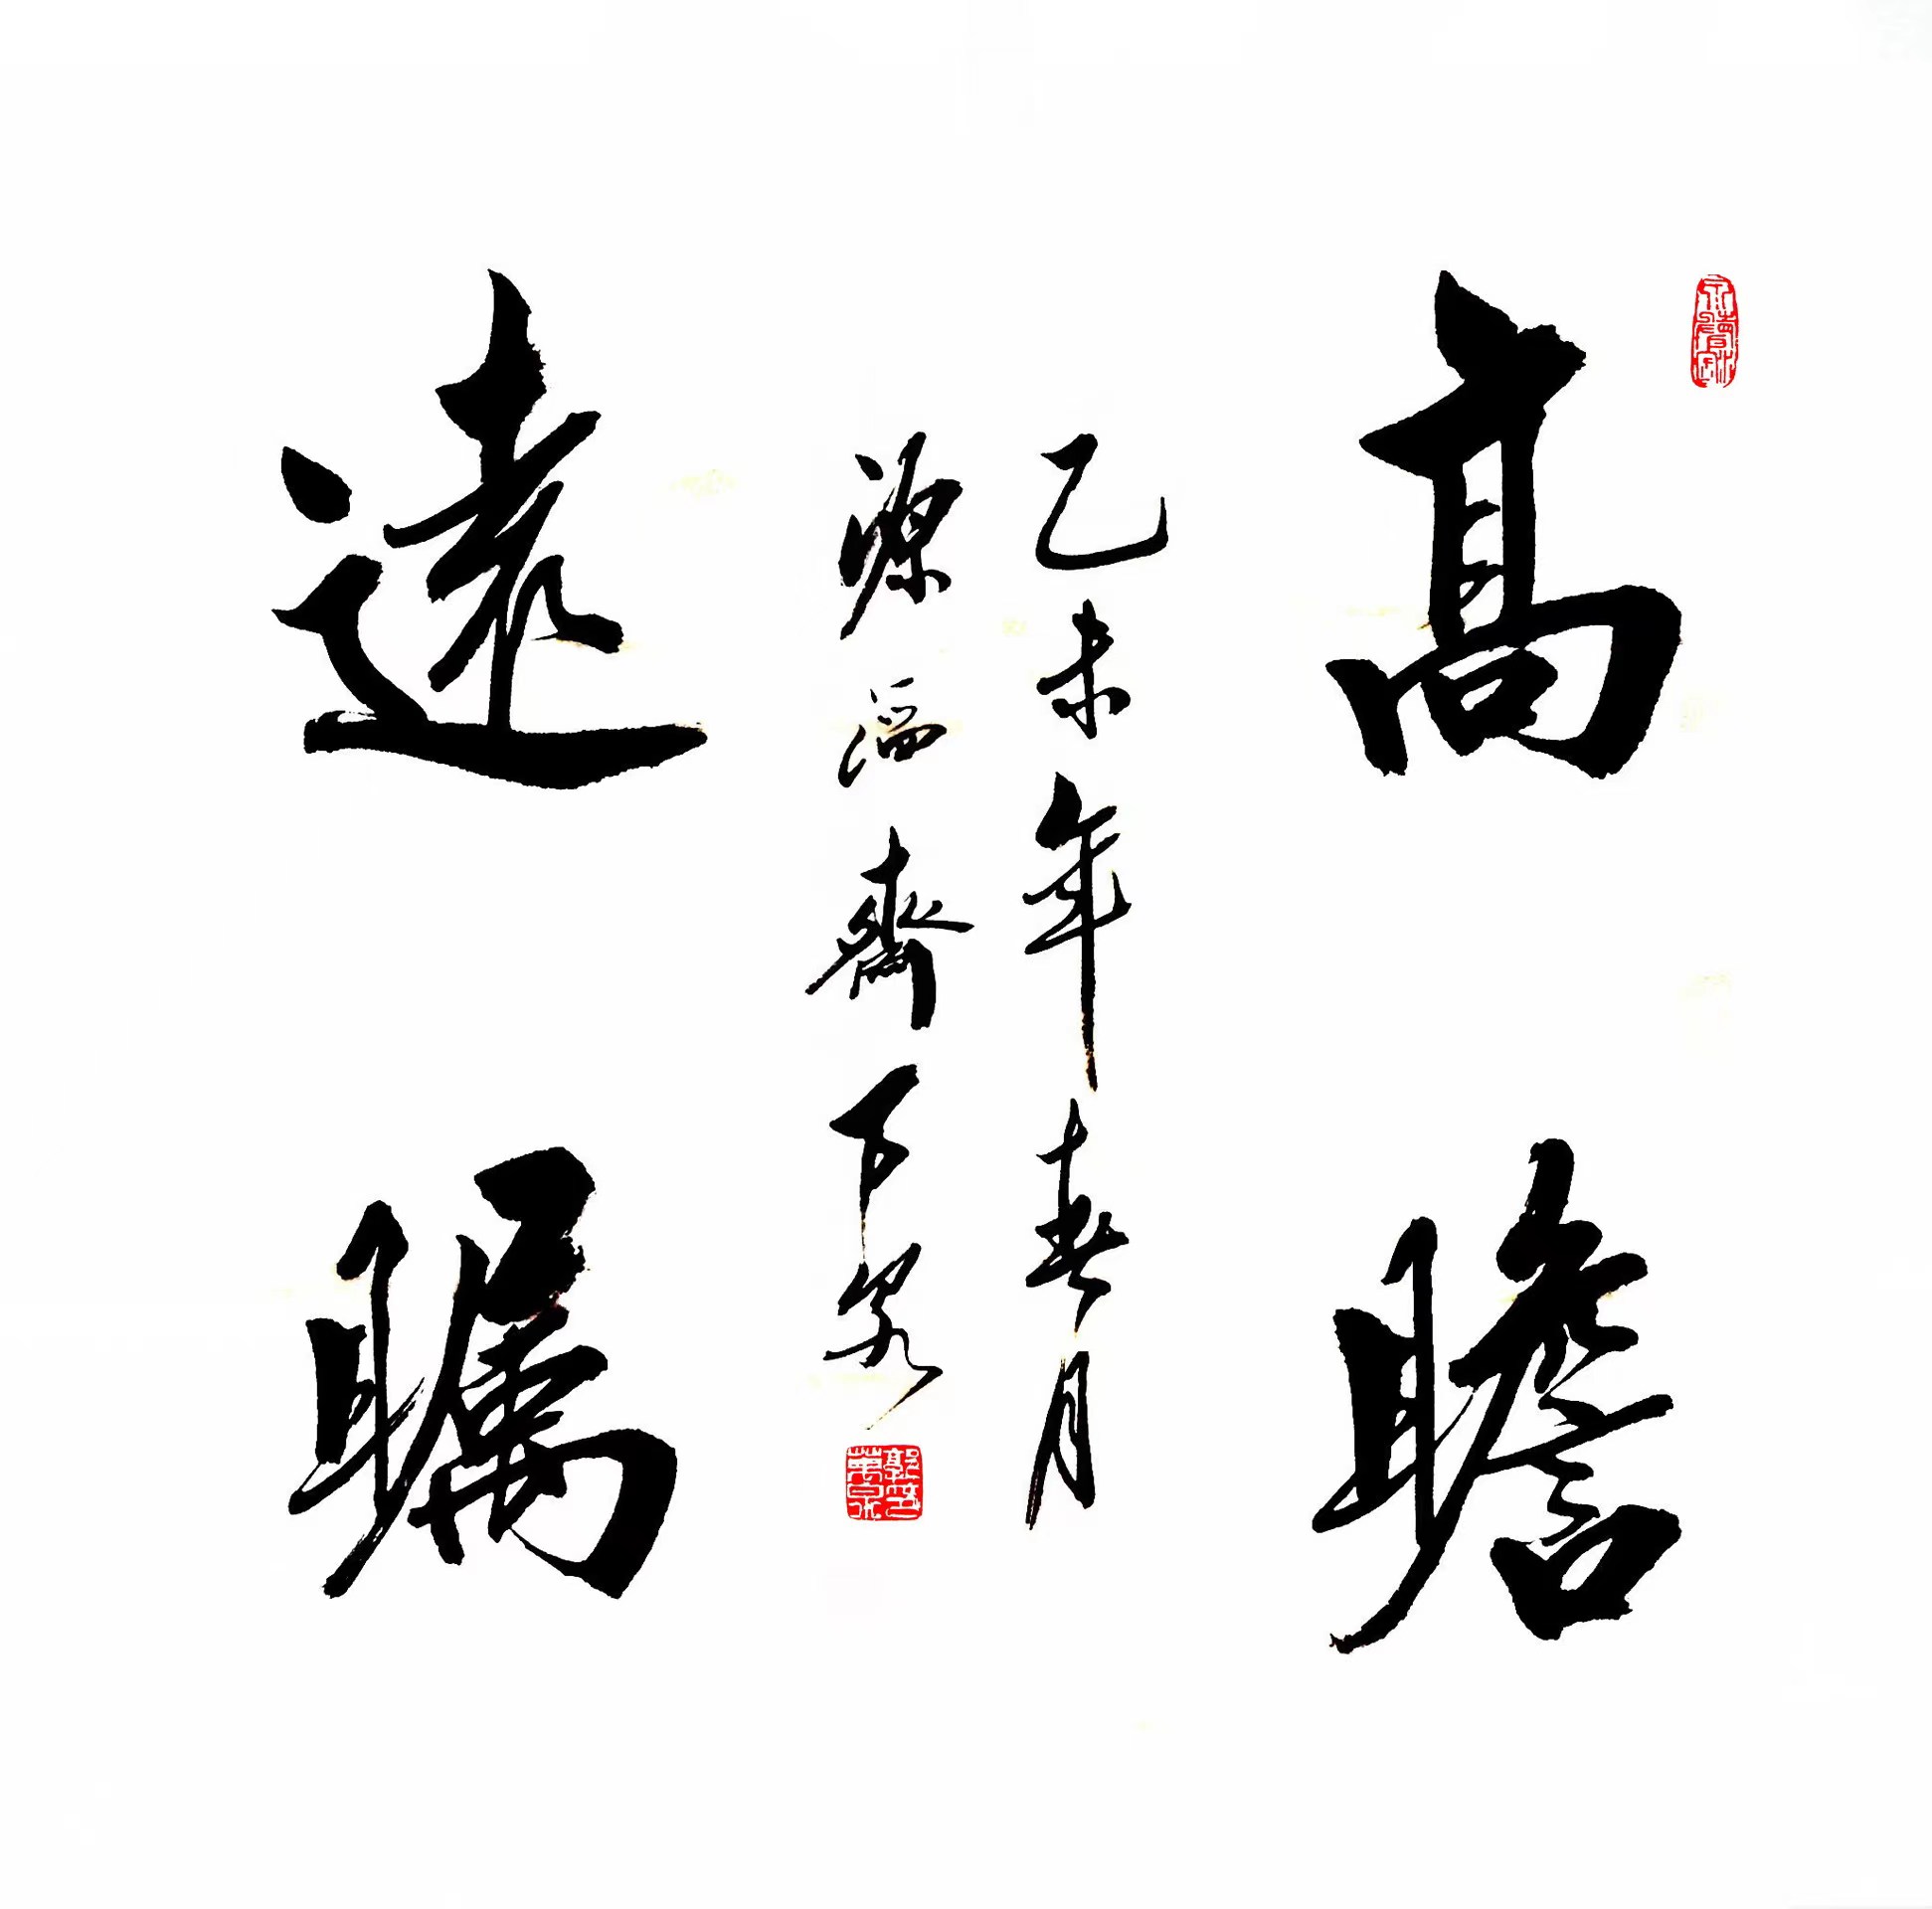 高瞻
乙未年春月
源滔齋下泉
遠矚